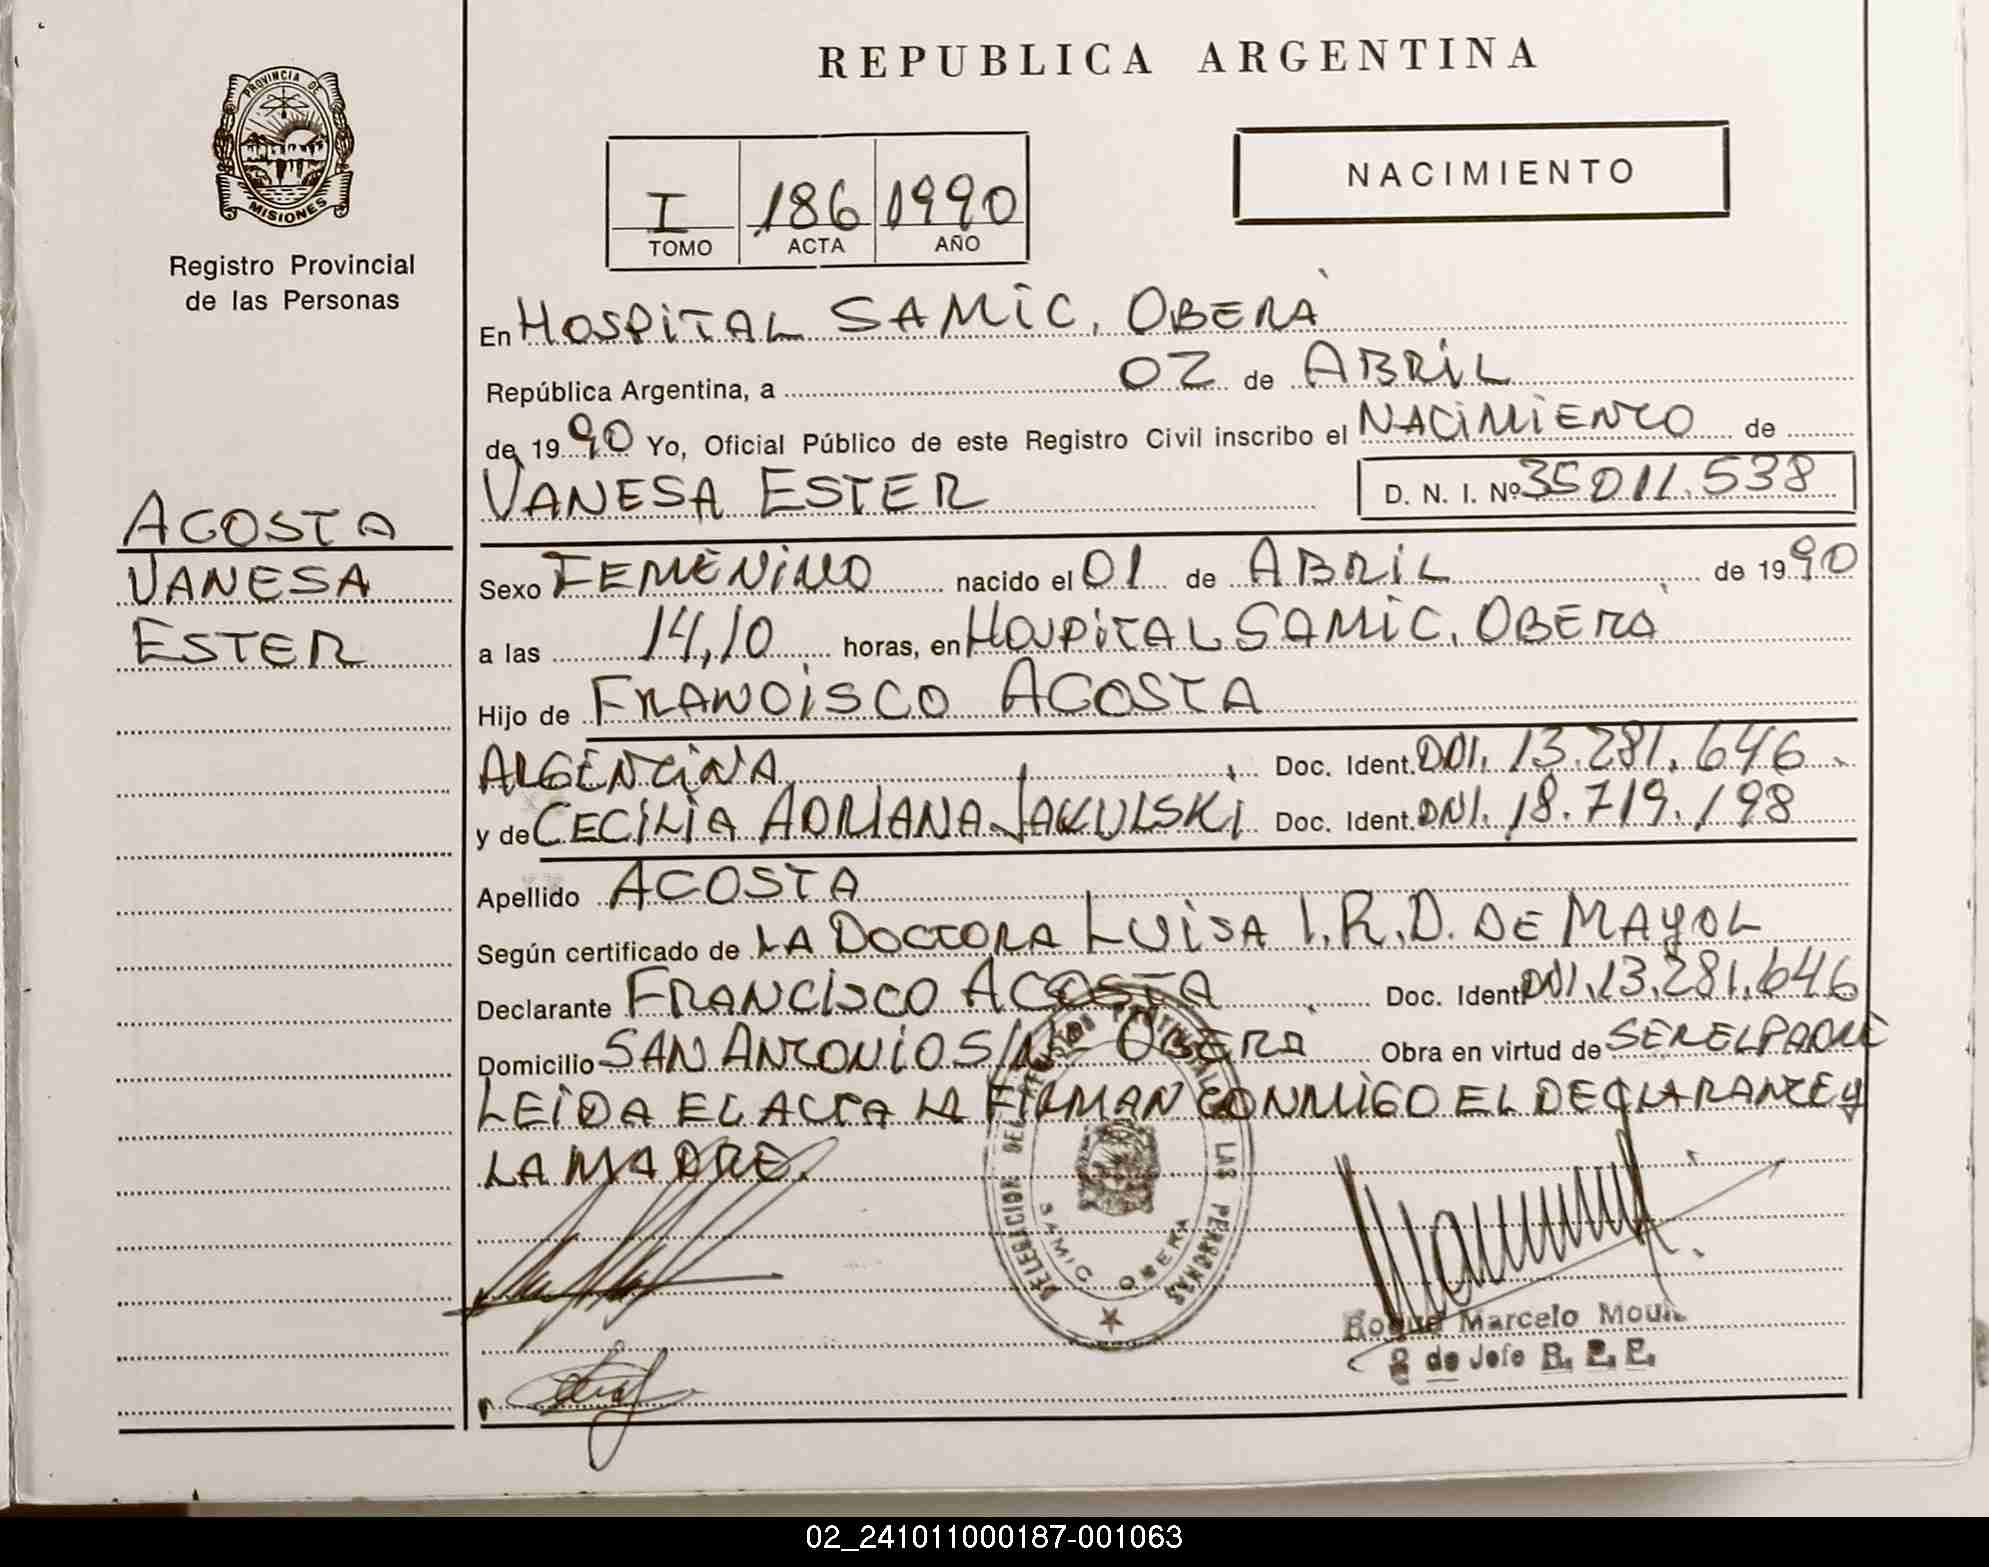 REPUBLICA ARGENTINA
PROVINCIA DE
MISIONES
Registro Provincial
de las Personas
I 186 1990
TOMO ACTA AÑO
NACIMIENTO
En HOSPITAL SAMIC, OBERÁ
República Argentina, a 02 de ABRIL
de 1990 Yo, Oficial Público de este Registro Civil inscribo el NACIMIENTO de
VANESA ESTER D. N. I. Nº 35011.538
ACOSTA
VANESA
ESTER
Sexo FEMENINO nacido el 01 de ABRIL de 1990
a las 14,10 horas, en HOSPITAL SAMIC, OBERÁ
Hijo de FRANCISCO ACOSTA
ARGENTINA Doc. Ident. DNI. 13.281.646.
y de CECILIA ADRIANA JAKULSKI Doc. Ident. DNI. 18.719.198
Apellido ACOSTA
Según certificado de LA DOCTORA LUISA I.R.D. DE MAYOL
Declarante FRANCISCO ACOSTA Doc. Ident. DNI.13.281.646
Domicilio SAN ANTONIO S/Nº OBERÁ Obra en virtud de SER EL PADRE
LEIDA EL ACTA LA FIRMAN CONMIGO EL DECLARANTE Y
LA MADRE.
DELEGACION DEL REGISTRO PROVINCIAL DE LAS PERSONAS
SAMIC OBERA
Roque Marcelo
2 de Jefe R. P. P.
02_241011000187-001063